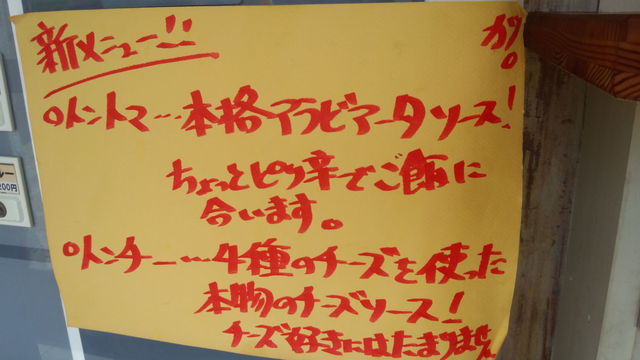 新メニュー!!
○メントマ…本格アラビアータソース!
ちょっとピリ辛でご飯に
合います。
○メンチー…4種のチーズを使った
本物のチーズソース!
チーズ好きにはたまりません
が。
200円